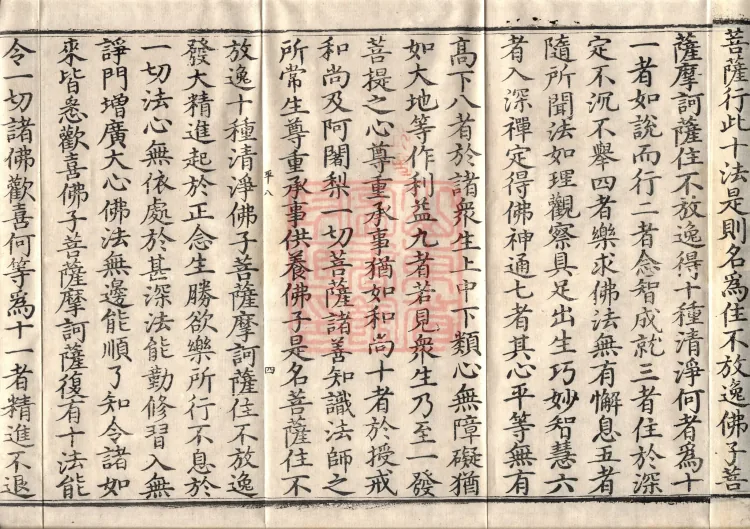 菩薩行此十法是則名為住不放逸佛子菩
薩摩訶薩住不放逸得十種清淨何者為十
一者如說而行二者念智成就三者住於深
定不沉不舉四者樂求佛法無有懈息五者
隨所聞法如理觀察具足出生巧妙智慧六
者入深禪定得佛神通七者其心平等無有
高下八者於諸衆生上中下類心無障礙猶
如大地等作利益九者若見衆生乃至一發
菩提之心尊重承事猶如和尚十者於授戒
和尚及阿闍梨一切菩薩諸善知識法師之
所常生尊重承事供養佛子是名菩薩住不
平八
四
放逸十種清淨佛子菩薩摩訶薩住不放逸
發大精進起於正念生勝欲樂所行不息於
一切法心無依處於甚深法能勤修習入無
諍門增廣大心佛法無邊能順了知令諸如
來皆悉歡喜佛子菩薩摩訶薩復有十法能
令一切諸佛歡喜何等為十一者精進不退